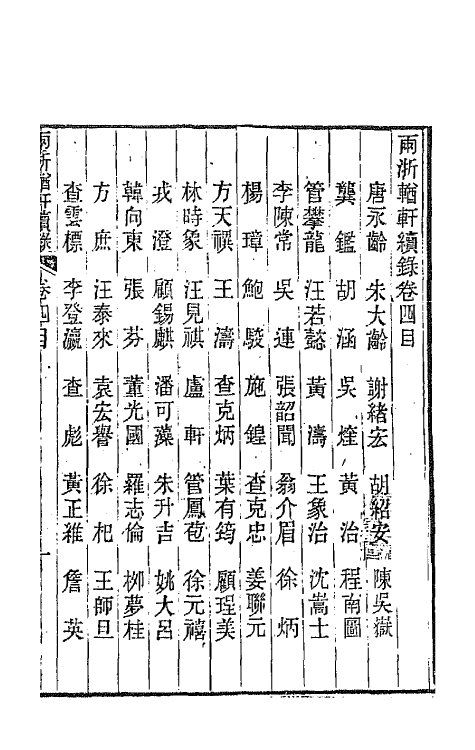 兩浙輶軒續錄卷四目
唐永齡 朱大齡 謝緒宏 胡紹安 陳吳嶽
龔鑑 胡涵 吳煃 黃治 程南圖
管攀龍 汪若懿 黃濤 王象治 沈嵩士
李陳常 吳連 張韶聞 翁介眉 徐炳
楊璋 鮑駿 施鍠 查克忠 姜聯元
方天禩 王濤 查克炳 葉有筠 顧瑆美
林時象 汪見祺 盧軒 管鳳苞 徐元禧
戎澄 顧錫麒 潘可藻 朱升吉 姚大呂
韓向東 張芬 董光國 羅志倫 栁夢桂
方庶 汪泰來 袁宏譽 徐杞 王師旦
查雲標 李登瀛 查彪 黃正維 詹英
兩浙輶軒續錄 卷四目 一